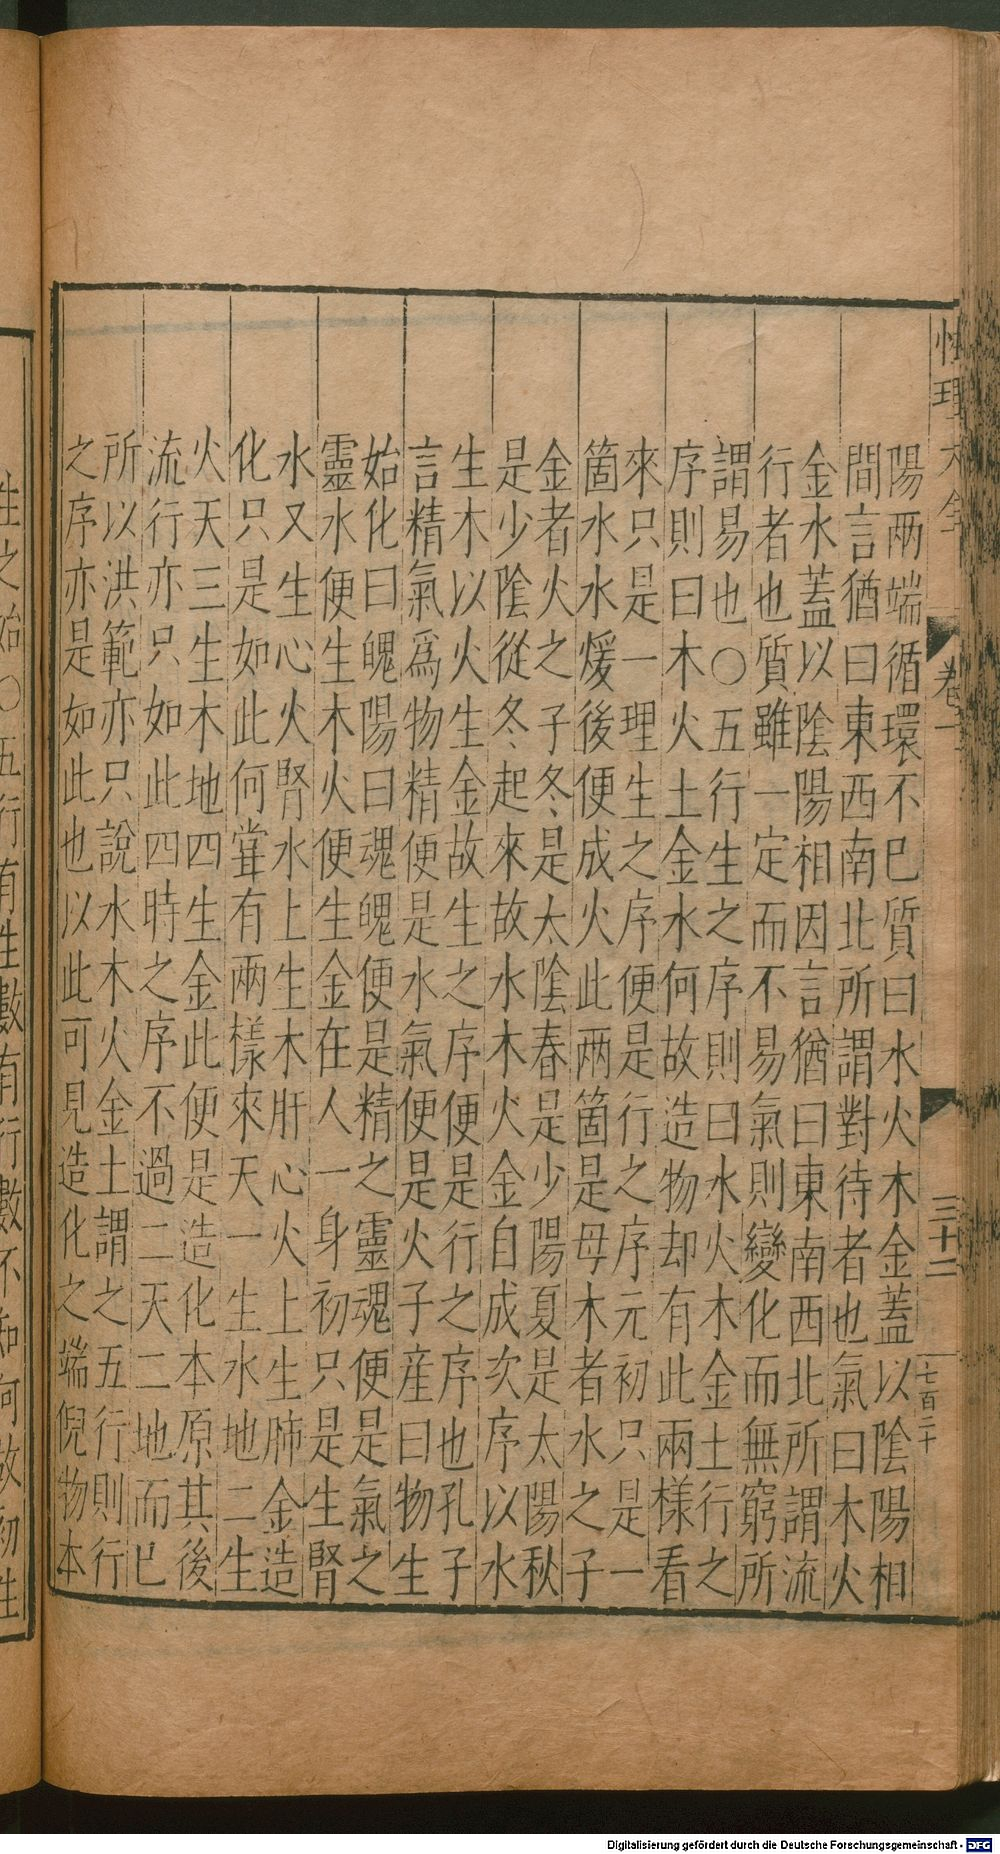 陽兩端循環不已質曰水火木金蓋以陰陽相
間言猶曰東西南北所謂對待者也氣曰木火
金水蓋以陰陽相因言猶曰東南西北所謂流
行者也質雖一定而不易氣則變化而無窮所
謂易也○五行生之序則曰水火木金土行之
序則曰木火土金水何故造物却有此兩樣看
來只是一理生之序便是行之序元初只是一
箇水水煖後便成火此兩箇是母木者水之子
金者火之子冬是太陰春是少陽夏是太陽秋
是少陰從冬起來故水木火金自成次序以水
生木以火生金故生之序便是行之序也孔子
言精氣爲物精便是水氣便是火子産曰物生
始化曰魄陽曰魂魄便是精之靈魂便是氣之
靈水便生木火便生金在人一身初只是生腎
水又生心火腎水上生木肝心火上生肺金造
化只是如此何甞有兩樣來天一生水地二生
火天三生木地四生金此便是造化本原其後
流行亦只如此四時之序不過二天二地而已
所以洪範亦只說水木火金土謂之五行則行
之序亦是如此也以此可見造化之端倪物本
性理大全
卷一
三十二
七百二十
性之始○五行有性數有行數不知何故初生
Digitalisierung gefördert durch die Deutsche Forschungsgemeinschaft - DFG